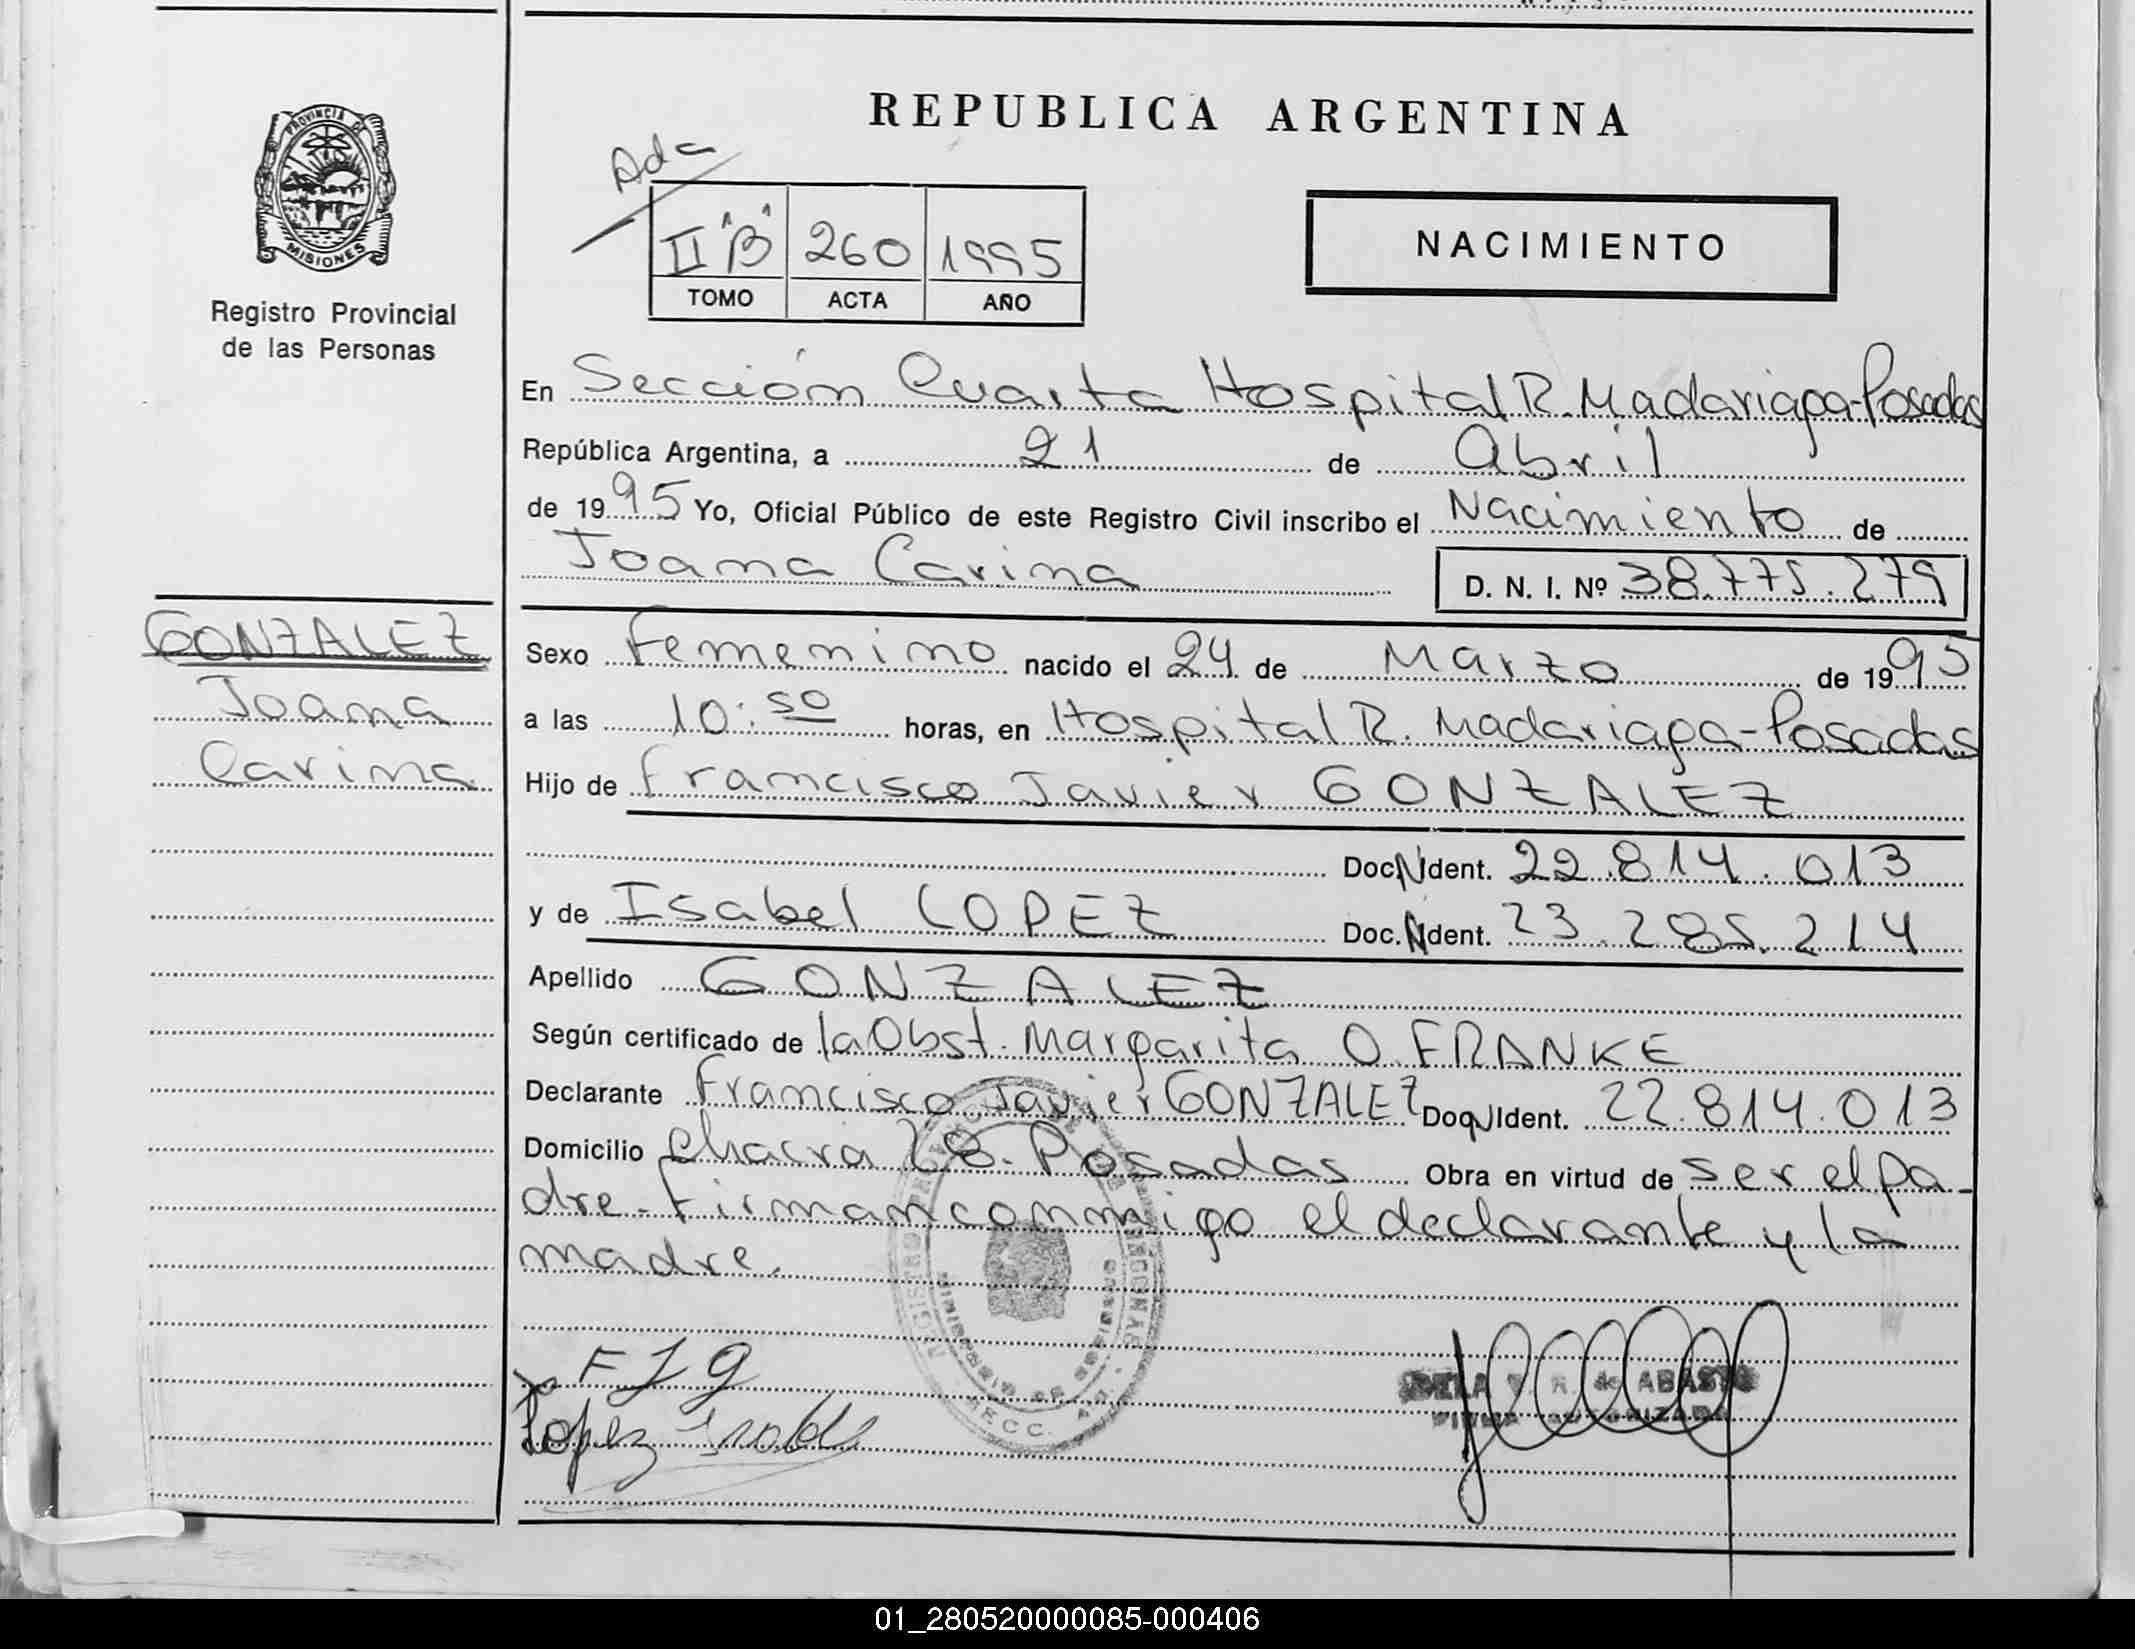 PROVINCIA DE
MISIONES
Registro Provincial
de las Personas
GONZALEZ
Joana
Carina
REPUBLICA ARGENTINA
Ada
II "B" 260 1995
TOMO ACTA AÑO
NACIMIENTO
En Sección Cuarta Hospital R. Madariaga-Posadas
República Argentina, a 21 de Abril
de 1995 Yo, Oficial Público de este Registro Civil inscribo el Nacimiento de
Joana Carina D. N. I. Nº 38.775.279
Sexo Femenino nacido el 24 de Marzo de 1995
a las 10:50 horas, en Hospital R. Madariaga-Posadas
Hijo de Francisco Javier GONZALEZ
Doc.N.Ident. 22.814.013
y de Isabel LOPEZ Doc.N.Ident. 23.285.214
Apellido GONZALEZ
Según certificado de la Obst. Margarita O. FRANKE
Declarante Francisco Javier GONZALEZ Doc.N.Ident. 22.814.013
Domicilio Chacra 28. Posadas Obra en virtud de ser el pa-
dre. Firman conmigo el declarante y la
madre.
FJG
Lopez Isabel
de ABASTO
01_280520000085-000406